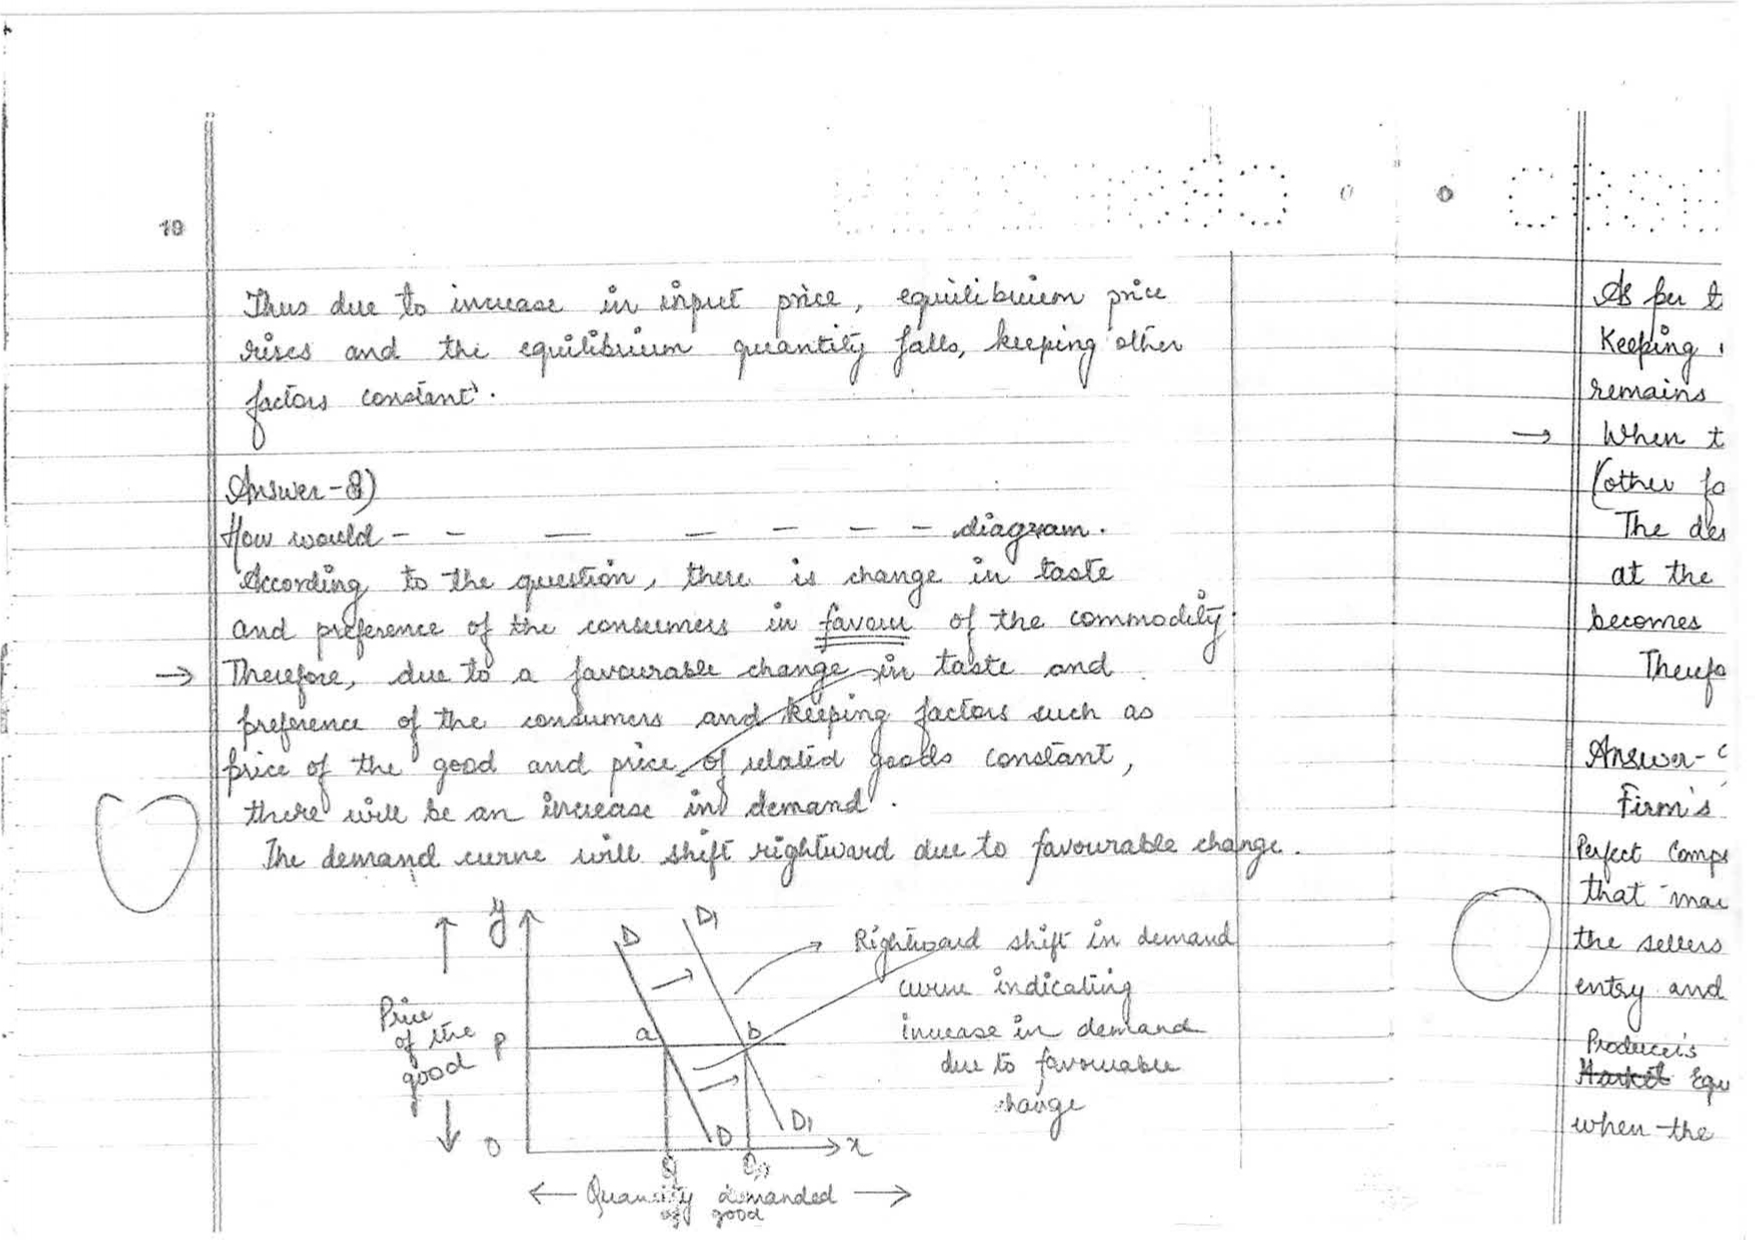 19
Thus due to increase in input price, equilibrium price
rises and the equilibrium quantity falls, keeping other
factors constant.
Answer-8)
How would - - — — - - - diagram.
According to the question, there is change in taste
and preference of the consumers in favour of the commodity.
→ Therefore, due to a favourable change in taste and
preference of the consumers and keeping factors such as
price of the good and price of related goods constant,
there will be an increase in demand.
The demand curve will shift rightward due to favourable change.
y
D
D1
Rightward shift in demand
curve indicating
increase in demand
due to favourable
change
Price
of the
good
P
a
b
D
D1
O
x
Q
Quantity demanded
of good
As per t
Keeping
remains
→ When t
(other fa
The de
at the
becomes
Answer-
Firm's
Perfect Comp
that
the sellers
entry and
Producer's
Market Equ
when the